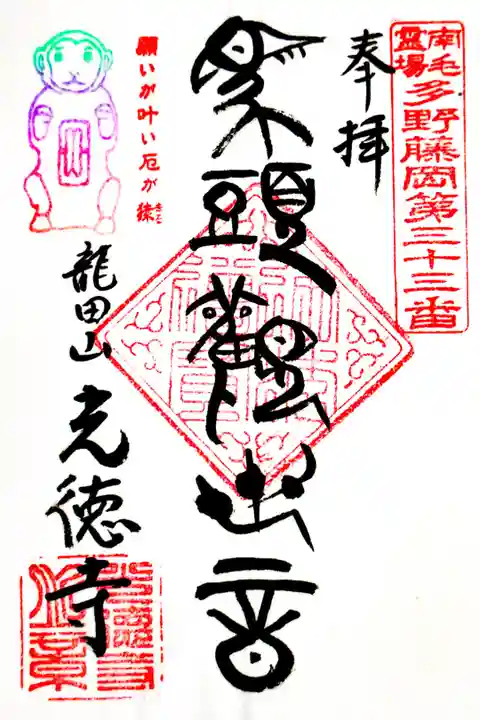 南毛霊場
多野藤岡第三十三番
奉拝
頭觀世音
願いが叶い厄が猿
龍田山
光徳寺